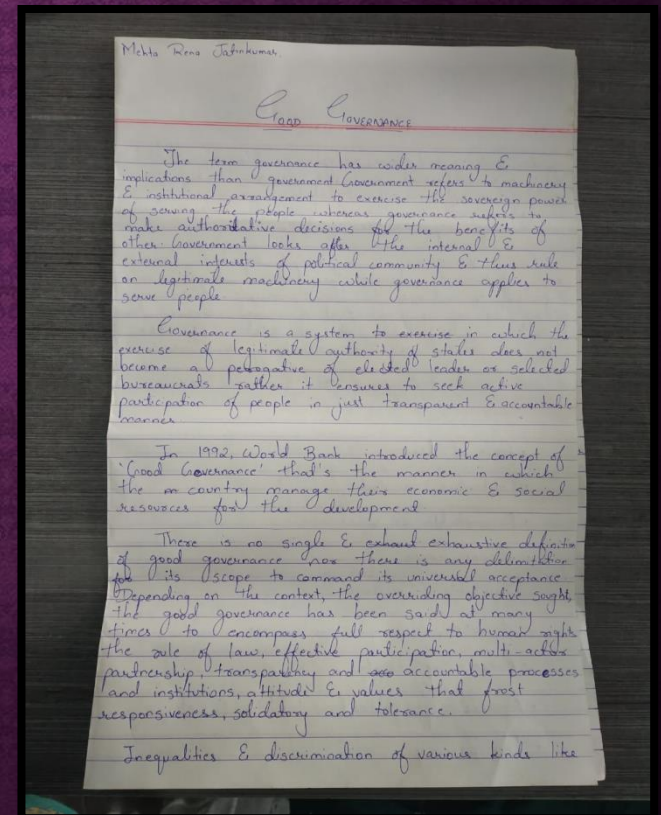 Mehta Rena Jatinkumar.
GOOD GOVERNANCE
The term governance has wider meaning &
implications than government Government refers to machinery
& institutional arrangement to exercise the sovereign power
of serving the people whereas governance refers to
make authoridative decisions for the benefits of
other. Government looks after the internal &
external interests of political community & thus rule
on legitimate machinery while governance applies to
serve people
Governance is a system to exercise in which the
exercise of legitimate authority of states does not
become a perogative of elected leader or selected
bureaucrats rather it ensures to seek active
participation of people in just transparent & accountable
manner
In 1992, World Bank introduced the concept of
'Good Governance' that's the manner in which
the country manage their economic & social
resources for the development
There is no single & exhaust exhaustive definition
of good governance nor there is any delimitation
for its scope to command its universal acceptance.
Depending on the context, the overriding objective sought,
the good governance has been said at many
times to encompass full respect to human rights
the rule of law, effective participation, multi-actor
partnership, transparency and accountable processes
and institutions, attitude & values that frost
responsiveness, solidatory and tolerance.
Inequalities & discrimination of various kinds like